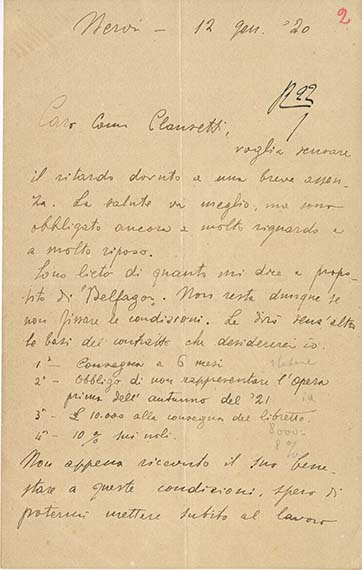 Nervi - 12 gen. '20
2
R 22
Caro Comm Clausetti,
voglia scusare
il ritardo dovuto a una breve assen-
za. La salute va meglio, ma sono
obbligato ancora a molto riguardo e
a molto riposo.
Sono lieto di quanto mi dice a propo-
sito di "Belfagor". Non resta dunque se
non fissare le condizioni. Le dirò senz'altro
le basi del contratto che desidererei io.
1º - Consegna a 6 mesi
2º - Obbligo di non rappresentare l'Opera
prima dell'autunno del '21
3º - £ 10.000 alla consegna del libretto.
8000
4º - 10 % sui noli.
8 %
Non appena ricevuto il suo bene-
stare a queste condizioni, spero di
potermi mettere subito al lavoro